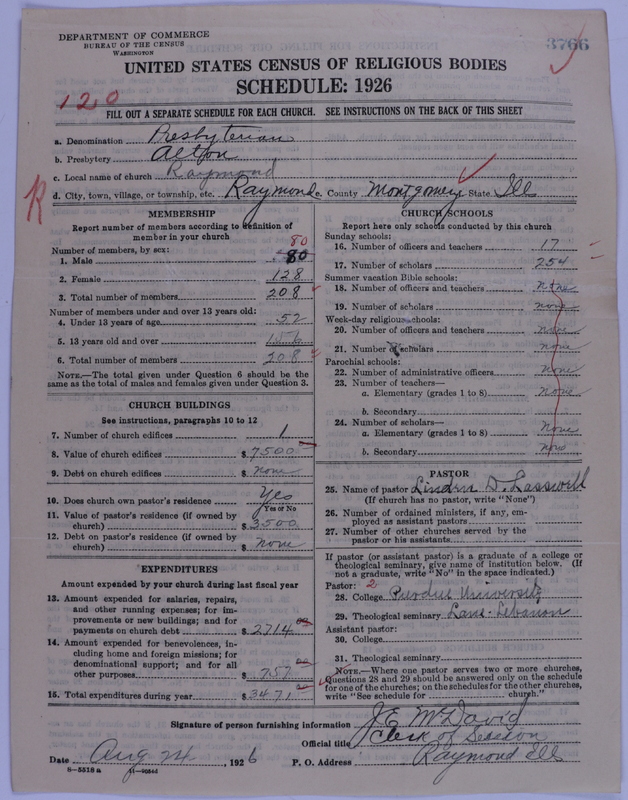 DEPARTMENT OF COMMERCE
BUREAU OF THE CENSUS
WASHINGTON
3766
UNITED STATES CENSUS OF RELIGIOUS BODIES
SCHEDULE: 1926
120
FILL OUT A SEPARATE SCHEDULE FOR EACH CHURCH. SEE INSTRUCTIONS ON THE BACK OF THIS SHEET
a. Denomination Presbyterian
b. Presbytery Alton
c. Local name of church Raymond
d. City, town, village, or township, etc. Raymond County Montgomery State Ill
R
MEMBERSHIP
Report number of members according to definition of
member in your church
Number of members, by sex: 80
1. Male 80
2. Female 128
3. Total number of members 208
Number of members under and over 13 years old:
4. Under 13 years of age 52
5. 13 years old and over 156
6. Total number of members 208
NOTE.—The total given under Question 6 should be the
same as the total of males and females given under Question 3.
CHURCH BUILDINGS
See instructions, paragraphs 10 to 12
7. Number of church edifices 1
8. Value of church edifices $ 7500
9. Debt on church edifices $ none
10. Does church own pastor's residence Yes
Yes or No
11. Value of pastor's residence (if owned by
church) $ 3500
12. Debt on pastor's residence (if owned by
church) $ none
EXPENDITURES
Amount expended by your church during last fiscal year
13. Amount expended for salaries, repairs,
and other running expenses; for im-
provements or new buildings; and for
payments on church debt $ 2714
14. Amount expended for benevolences, in-
cluding home and foreign missions; for
denominational support; and for all
other purposes $ 757
15. Total expenditures during year $ 3471
CHURCH SCHOOLS
Report here only schools conducted by this church
Sunday schools:
16. Number of officers and teachers 17
17. Number of scholars 254
Summer vacation Bible schools:
18. Number of officers and teachers none
19. Number of scholars none
Week-day religious schools:
20. Number of officers and teachers none
21. Number of scholars none
Parochial schools:
22. Number of administrative officers none
23. Number of teachers—
a. Elementary (grades 1 to 8) none
b. Secondary
24. Number of scholars—
a. Elementary (grades 1 to 8) none
b. Secondary none
PASTOR
25. Name of pastor D. Lasswell
(If church has no pastor, write "None")
26. Number of ordained ministers, if any, em-
ployed as assistant pastors
27. Number of other churches served by the
pastor or his assistants
If pastor (or assistant pastor) is a graduate of a college or
theological seminary, give name of institution below. (If
not a graduate, write "No" in the space indicated.)
Pastor: 2
28. College Purdue University
29. Theological seminary Lane-Lebanon
Assistant pastor:
30. College
31. Theological seminary
NOTE.—Where one pastor serves two or more churches,
Questions 28 and 29 should be answered only on the schedule
for one of the churches; on the schedules for the other churches,
write "See schedule for ______ church."
Signature of person furnishing information J.E. McDavid
Official title Clerk of Session
Date Aug 24, 1926 P. O. Address Raymond Ill
8—5518a 11—9034d